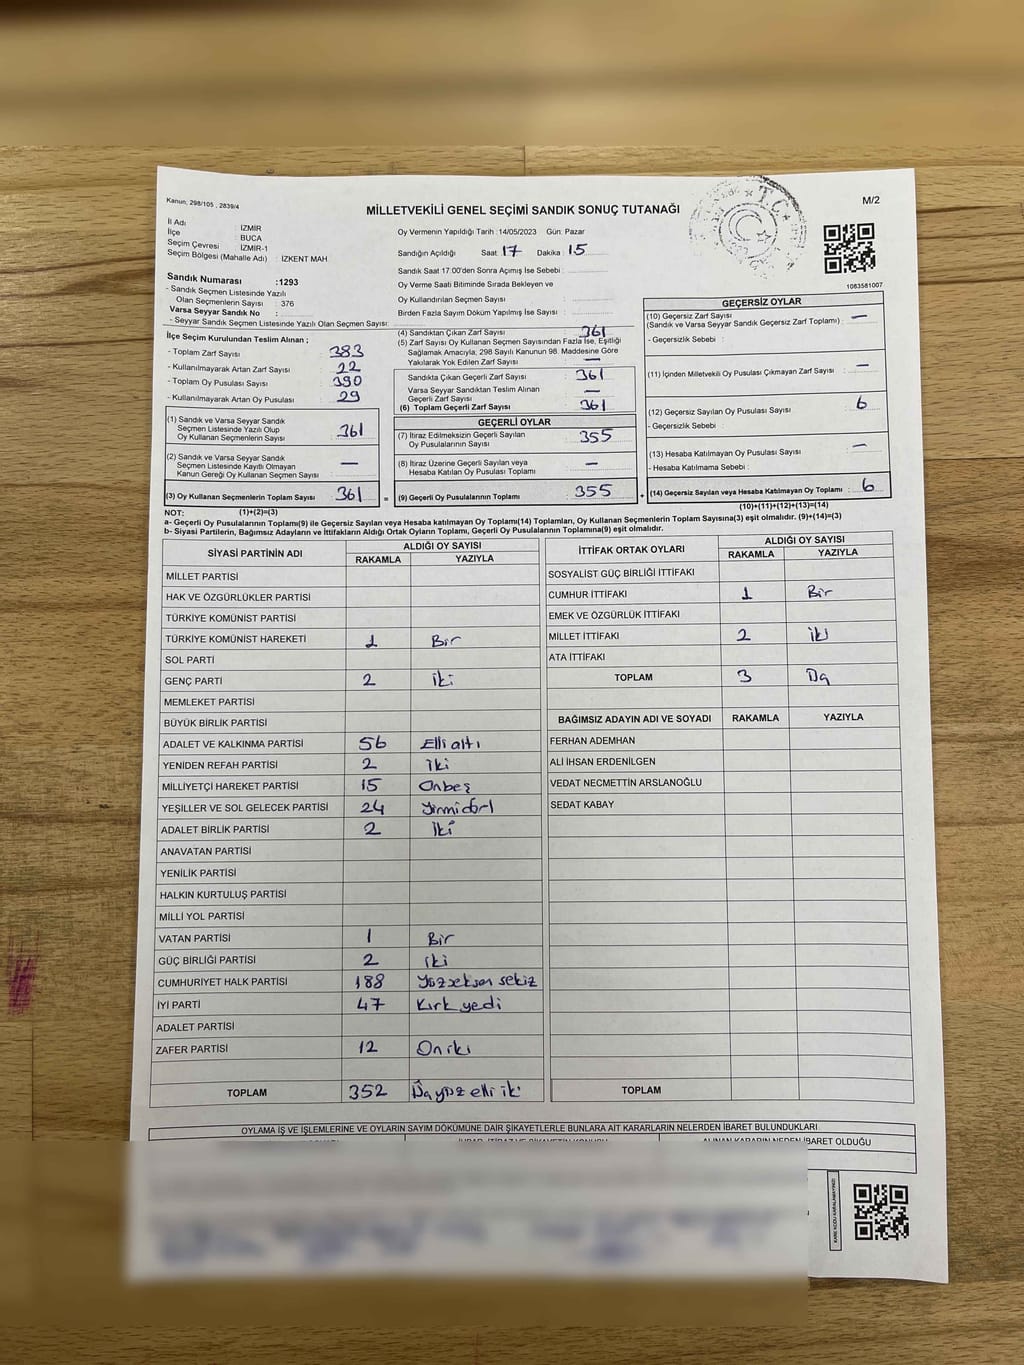 Kanun; 298/105 , 2839/4
MİLLETVEKİLİ GENEL SEÇİMİ SANDIK SONUÇ TUTANAĞI
M/2
T.C.
İl Adı : İZMİR
İlçe : BUCA
Seçim Çevresi : İZMİR-1
Seçim Bölgesi (Mahalle Adı) : İZKENT MAH
Sandık Numarası :1293
- Sandık Seçmen Listesinde Yazılı
Olan Seçmenlerin Sayısı : 376
Varsa Seyyar Sandık No :
- Seyyar Sandık Seçmen Listesinde Yazılı Olan Seçmen Sayısı:
Oy Vermenin Yapıldığı Tarih :14/05/2023 Gün: Pazar
Sandığın Açıldığı Saat : 17 Dakika : 15
Sandık Saat 17.00'den Sonra Açımış İse Sebebi :
Oy Verme Saati Bitiminde Sırada Bekleyen ve
Oy Kullandırılan Seçmen Sayısı :
Birden Fazla Sayım Döküm Yapılmış İse Sayısı :
1063581007
İlçe Seçim Kurulundan Teslim Alınan ;
- Toplam Zarf Sayısı : 383
- Kullanılmayarak Artan Zarf Sayısı : 22
- Toplam Oy Pusulası Sayısı : 390
- Kullanılmayarak Artan Oy Pusulası : 29
(1) Sandık ve Varsa Seyyar Sandık
Seçmen Listesinde Yazılı Olup
Oy Kullanan Seçmenlerin Sayısı : 361
(2) Sandık ve Varsa Seyyar Sandık
Seçmen Listesinde Kayıtlı Olmayan
Kanun Gereği Oy Kullanan Seçmen Sayısı : —
(3) Oy Kullanan Seçmenlerin Toplam Sayısı : 361 =
(4) Sandıktan Çıkan Zarf Sayısı : 361
(5) Zarf Sayısı Oy Kullanan Seçmen Sayısından Fazla İse, Eşitliği
Sağlamak Amacıyla; 298 Sayılı Kanunun 98. Maddesine Göre
Yakılarak Yok Edilen Zarf Sayısı : —
Sandıkta Çıkan Geçerli Zarf Sayısı : 361
Varsa Seyyar Sandıktan Teslim Alınan
Geçerli Zarf Sayısı : —
(6) Toplam Geçerli Zarf Sayısı : 361
GEÇERLİ OYLAR
(7) İtiraz Edilmeksizin Geçerli Sayılan
Oy Pusulalarının Sayısı : 355
(8) İtiraz Üzerine Geçerli Sayılan veya
Hesaba Katılan Oy Pusulası Toplamı : —
(9) Geçerli Oy Pusulalarının Toplamı : 355 +
GEÇERSİZ OYLAR
(10) Geçersiz Zarf Sayısı : —
(Sandık ve Varsa Seyyar Sandık Geçersiz Zarf Toplamı)
- Geçersizlik Sebebi :
(11) İçinden Milletvekili Oy Pusulası Çıkmayan Zarf Sayısı : —
(12) Geçersiz Sayılan Oy Pusulası Sayısı : 6
- Geçersizlik Sebebi :
(13) Hesaba Katılmayan Oy Pusulası Sayısı : —
- Hesaba Katılmama Sebebi :
(14) Geçersiz Sayılan veya Hesaba Katılmayan Oy Toplamı : 6
NOT: (1)+(2)=(3)
(10)+(11)+(12)+(13)=(14)
a- Geçerli Oy Pusulalarının Toplamı(9) ile Geçersiz Sayılan veya Hesaba katılmayan Oy Toplamı(14) Toplamları, Oy Kullanan Seçmenlerin Toplam Sayısına(3) eşit olmalıdır. (9)+(14)=(3)
b- Siyasi Partilerin, Bağımsız Adayların ve İttifakların Aldığı Ortak Oyların Toplamı, Geçerli Oy Pusulalarının Toplamına(9) eşit olmalıdır.
SİYASİ PARTİNİN ADI ALDIĞI OY SAYISI
RAKAMLA YAZIYLA
MİLLET PARTİSİ
HAK VE ÖZGÜRLÜKLER PARTİSİ
TÜRKİYE KOMÜNİST PARTİSİ
TÜRKİYE KOMÜNİST HAREKETİ 1 Bir
SOL PARTİ
GENÇ PARTİ 2 iki
MEMLEKET PARTİSİ
BÜYÜK BİRLİK PARTİSİ
ADALET VE KALKINMA PARTİSİ 56 Elli altı
YENİDEN REFAH PARTİSİ 2 iki
MİLLİYETÇİ HAREKET PARTİSİ 15 Onbeş
YEŞİLLER VE SOL GELECEK PARTİSİ 24 Yirmidört
ADALET BİRLİK PARTİSİ 2 iki
ANAVATAN PARTİSİ
YENİLİK PARTİSİ
HALKIN KURTULUŞ PARTİSİ
MİLLİ YOL PARTİSİ
VATAN PARTİSİ 1 Bir
GÜÇ BİRLİĞİ PARTİSİ 2 iki
CUMHURİYET HALK PARTİSİ 188 Yüzseksen sekiz
İYİ PARTİ 47 Kırk yedi
ADALET PARTİSİ
ZAFER PARTİSİ 12 Oniki
TOPLAM 352 Üçyüz elli iki
İTTİFAK ORTAK OYLARI ALDIĞI OY SAYISI
RAKAMLA YAZIYLA
SOSYALİST GÜÇ BİRLİĞİ İTTİFAKI
CUMHUR İTTİFAKI 1 Bir
EMEK VE ÖZGÜRLÜK İTTİFAKI
MİLLET İTTİFAKI 2 iki
ATA İTTİFAKI
TOPLAM 3 Üç
BAĞIMSIZ ADAYIN ADI VE SOYADI RAKAMLA YAZIYLA
FERHAN ADEMHAN
ALİ İHSAN ERDENİLGEN
VEDAT NECMETTİN ARSLANOĞLU
SEDAT KABAY
TOPLAM
OYLAMA İŞ VE İŞLEMLERİNE VE OYLARIN SAYIM DÖKÜMÜNE DAİR ŞİKAYETLERLE BUNLARA AİT KARARLARIN NELERDEN İBARET BULUNDUKLARI
ALINAN KARARIN NEDEN İBARET OLDUĞU
KARE KODU KARALAMAYINIZ!